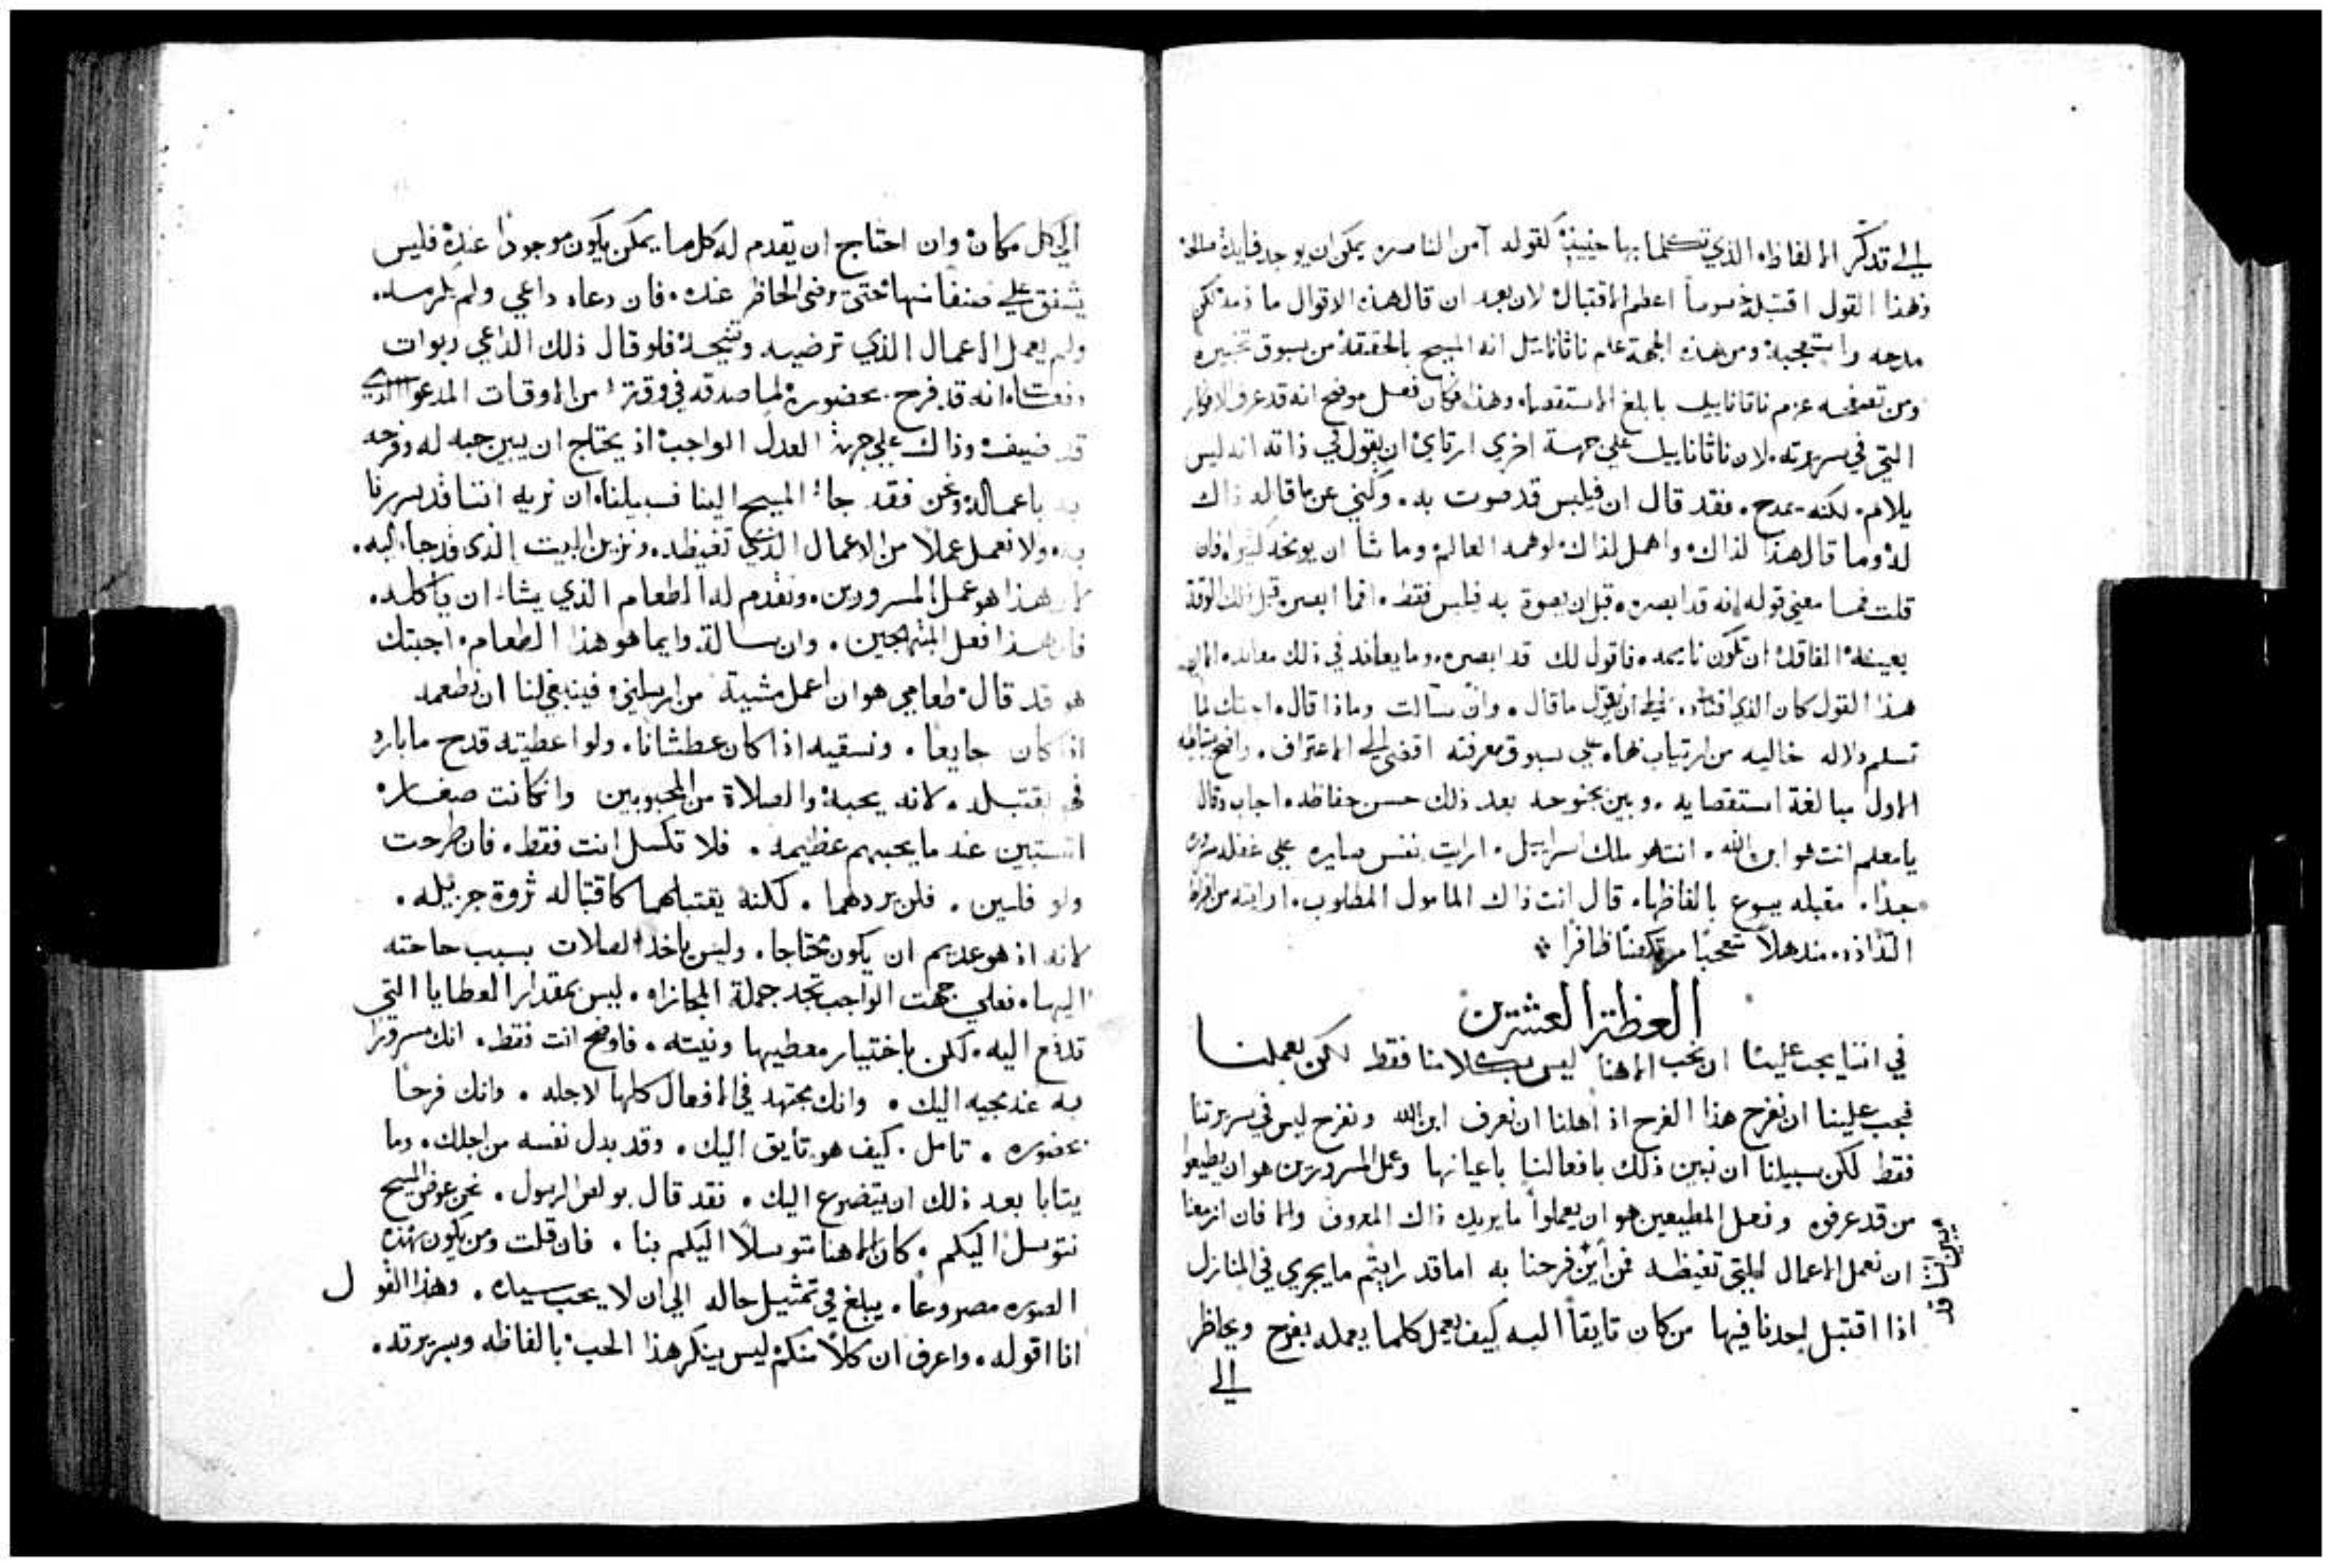 الي تذكر الالفاظه الذي تكلما بها حينيذ كقوله آمن الناصره يمكن ان يوجد فايدة صالحة
فهذا القول اقتبله يسوعاً اعظم الاقتبال لان بعد ان قال هذه الاقوال ما ذمه لكن
مدحه واستعجبه ومن هذه الجهة علم ناثاناييل انه المسيح بالحقيقة من سبوق تخبيره
ومن تفحصه عزم ناثاناييل بابلغ الاستقصاء وهذا فكان فعل موضح انه قد عرف الافكار
التي في سريرته. لان ناثاناييل علي جهة اخري ارتاي ان يقول في ذاته انه ليس
يلام. لكنه يمدح. فقد قال ان فيلبس قد صوت به. وكني عن ما قاله ذاك
له وما قال هذا لذاك واهمل لذاك لوهمه العالم وما شا ان يوبخه كثيرا فان
قلت فما معني قوله انه قد ابصره قبل ان يصوت به فيلبس فقط. افما ابصره قبل ذلك الوقت
بعينه الفاقدة ان تكون نايمه فاقول لك قد ابصره. وما يعاند في ذلك معاند
هذا القول كان الذي ان يقول ما قال. وان سالت وماذا قال اجبتك لما
تسلم دلاله خاليه من ارتياب بها علي سبوق معرفته افضي الي الاعتراف. واضح
الاول مبالغة استقصايه. وبين بجنوحه بعد ذلك حسن حفاظه اجاب وقال
يا معلم انت هو ابن الله. انت هو ملك اسراييل. ارايت نفس صايره علي غفله مسروره
جداً. مقبله يسوع بالفاظها. قال انت ذاك المامول المطلوب. ارايته من فرط
التذاذه. مندهلاً متعجباً ظافراً
العظة العشرين
في اننا يجب علينا ان نحب الاهنا ليس بكلامنا فقط لكن بعملنا
فيجب علينا ان نفرح هذا الفرح اذ اهلنا ان نعرف ابن الله ونفرح ليس في سريرتنا
فقط لكن سبيلنا ان نبين ذلك بافعالنا باعيانها وعمل المسرورين هو ان يطيعوا
من قد عرفوه وفعل المطيعين هو ان يعملوا ما يريده ذاك المعروف والا فان ازمعنا
ان نعمل الاعمال التي تغيظه فمن اين نبين اننا قد فرحنا به اما قد رايتم ما يجري في المنازل
اذا اقتبل احدنا فيها من كان تايقاً اليه كيف يعمل كلما يعمله بفرح ويحاظر
الي
الي كل مكان وان احتاج ان يقدم له كل ما يمكن يكون موجوداً عنده فليس
يشفق علي صنفا منها حتي يرضي الحاظر عنده. فان دعاه داعي ولم يلزمه.
ولم يعمل الاعمال الذي ترضيه وتنجحه فلو قال ذلك الداعي ربوات
دفعات انه قد فرح بحضوره لما صدقه في وقتا من الاوقات المدعو الذي
قد ضيفه وذاك علي جهة العدل الواجب اذ يحتاج ان يبين حبه له وفرحه
به باعماله ونحن فقد جاء المسيح الينا فسبيلنا ان نريه اننا قد سررنا
به ولا نعمل عملاً من الاعمال الذي تغيظه. ونزين البيت الذي قد جاء اليه.
لان هذا هو عمل المسرورين. ونقدم له الطعام الذي يشاء ان ياكله.
فان هذا فعل المبتهجين. وان سالت وايما هو هذا الطعام. اجبتك
هو قد قال طعامي هو ان اعمل مشية من ارسلني فينبغي لنا ان نطعمه
اذا كان جايعاً. ونسقيه اذا كان عطشاناً. ولو اعطيته قدح ما بارد
فهو يقتبله. لانه يحبه والصلاة من المحبوبين وان كانت صغاره
تستبين عند ما يحبهم عظيمه. فلا تكسل انت فقط. فان طرحت
ولو فلسين. فلن يردهما. لكنه يقتبلهما كاقتباله ثروة جزيله.
لانه اذ هو عديم ان يكون محتاجا. وليس ياخذ الصلات بسبب حاجته
اليها. فعلي جهت الواجب تجد جملة المجازاه. ليس بمقدار العطايا التي
تدفع اليه. لكن باختيار معطيها ونيته. فاوضح انت فقط. انك مسروراً
به عند مجيه اليك. وانك مجتهد في الافعال كلها لاجله. وانك فرحاً
بحضوره. تامل. كيف هو تايق اليك. وقد بدل نفسه من اجلك. وما
يتابا بعد ذلك ان يتضرع اليك. فقد قال بولص الرسول. نحن عوض المسيح
نتوسل اليكم. كان الاهنا متوسلاً اليكم بنا. فان قلت ومن يكون بهذه
الصوره مصروعاً. يبلغ في تمثيل حاله الي ان لا يحب سياده. وهذا القول
انا اقوله. واعرف ان كلاً منكم ليس ينكر هذا الحب بالفاظه وسريرته.